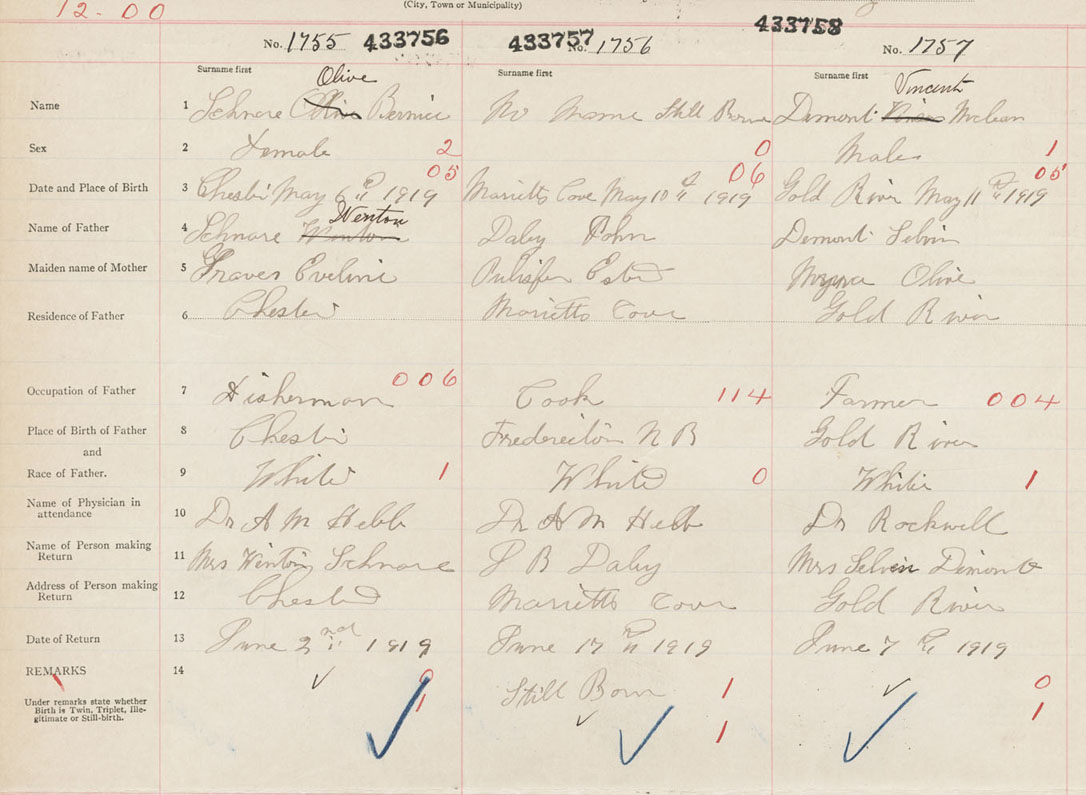 12-00
(City, Town or Municipality)
No. 1755 433756 433757 No. 1756 433758 No. 1757
Surname first Surname first Surname first
Olive Vincent
Name 1 Schnare Bernice No Name Still Born Demont McLean
Sex 2 Female 2 0 Male 1
05 06 05
Date and Place of Birth 3 Chester May 6th 1919 Marriotts Cove May 10th 1919 Gold River May 11th 1919
Wenton
Name of Father 4 Schnare Wenton Daley John Demont Selvin
Maiden name of Mother 5 Graves Eveline Pulisfer Ester Olive
Residence of Father 6 Chester Marriotts Cove Gold River
006
Occupation of Father 7 Fisherman Cook 114 Farmer 004
Place of Birth of Father 8 Chester Fredericton N B Gold River
and
Race of Father. 9 White 1 White 0 White 1
Name of Physician in
attendance 10 Dr A M Hebb Dr A M Hebb Dr Rockwell
Name of Person making
Return 11 Mrs Winton Schnare J B Daley Mrs Selvin Dimont
Address of Person making
Return 12 Chester Marriotts Cove Gold River
Date of Return 13 June 2nd 1919 June 17th 1919 June 7th 1919
REMARKS 14 0 Still Born 1 0
Under remarks state whether
Birth is Twin, Triplet, Ille-
gitimate or Still-birth. 1 1 1